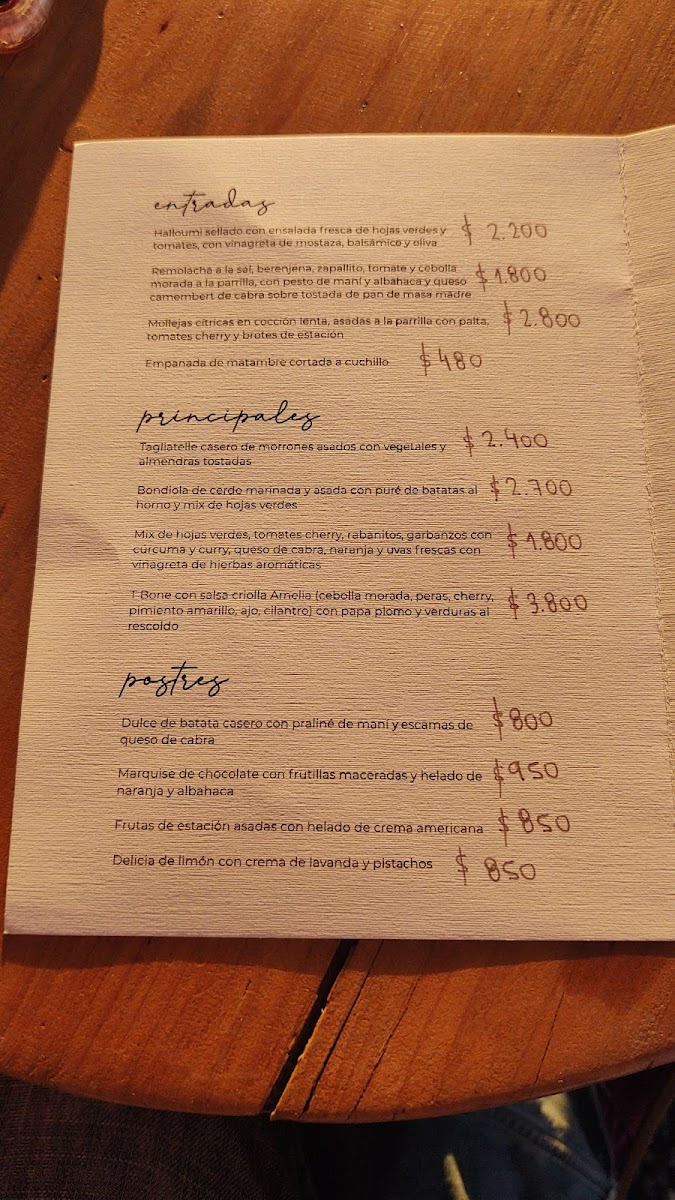 entradas
Halloumi sellado con ensalada fresca de hojas verdes y $ 2.200
tomates, con vinagreta de mostaza, balsámico y oliva
Remolacha a la sal, berenjena, zapallito, tomate y cebolla
morada a la parrilla, con pesto de maní y albahaca y queso $ 1.800
camembert de cabra sobre tostada de pan de masa madre
Mollejas cítricas en cocción lenta, asadas a la parrilla con palta, $ 2.800
tomates cherry y brotes de estación
Empanada de matambre cortada a cuchillo $ 480
principales
Tagliatelle casero de morrones asados con vegetales y $ 2.400
almendras tostadas
Bondiola de cerdo marinada y asada con puré de batatas al $ 2.700
horno y mix de hojas verdes
Mix de hojas verdes, tomates cherry, rabanitos, garbanzos con $ 1.800
cúrcuma y curry, queso de cabra, naranja y uvas frescas con
vinagreta de hierbas aromáticas
T-Bone con salsa criolla Amelia (cebolla morada, peras, cherry, $ 3.800
pimiento amarillo, ajo, cilantro) con papa plomo y verduras al
rescoldo
postres
Dulce de batata casero con praliné de maní y escamas de $ 800
queso de cabra
Marquise de chocolate con frutillas maceradas y helado de $ 950
naranja y albahaca
Frutas de estación asadas con helado de crema americana $ 850
Delicia de limón con crema de lavanda y pistachos $ 850